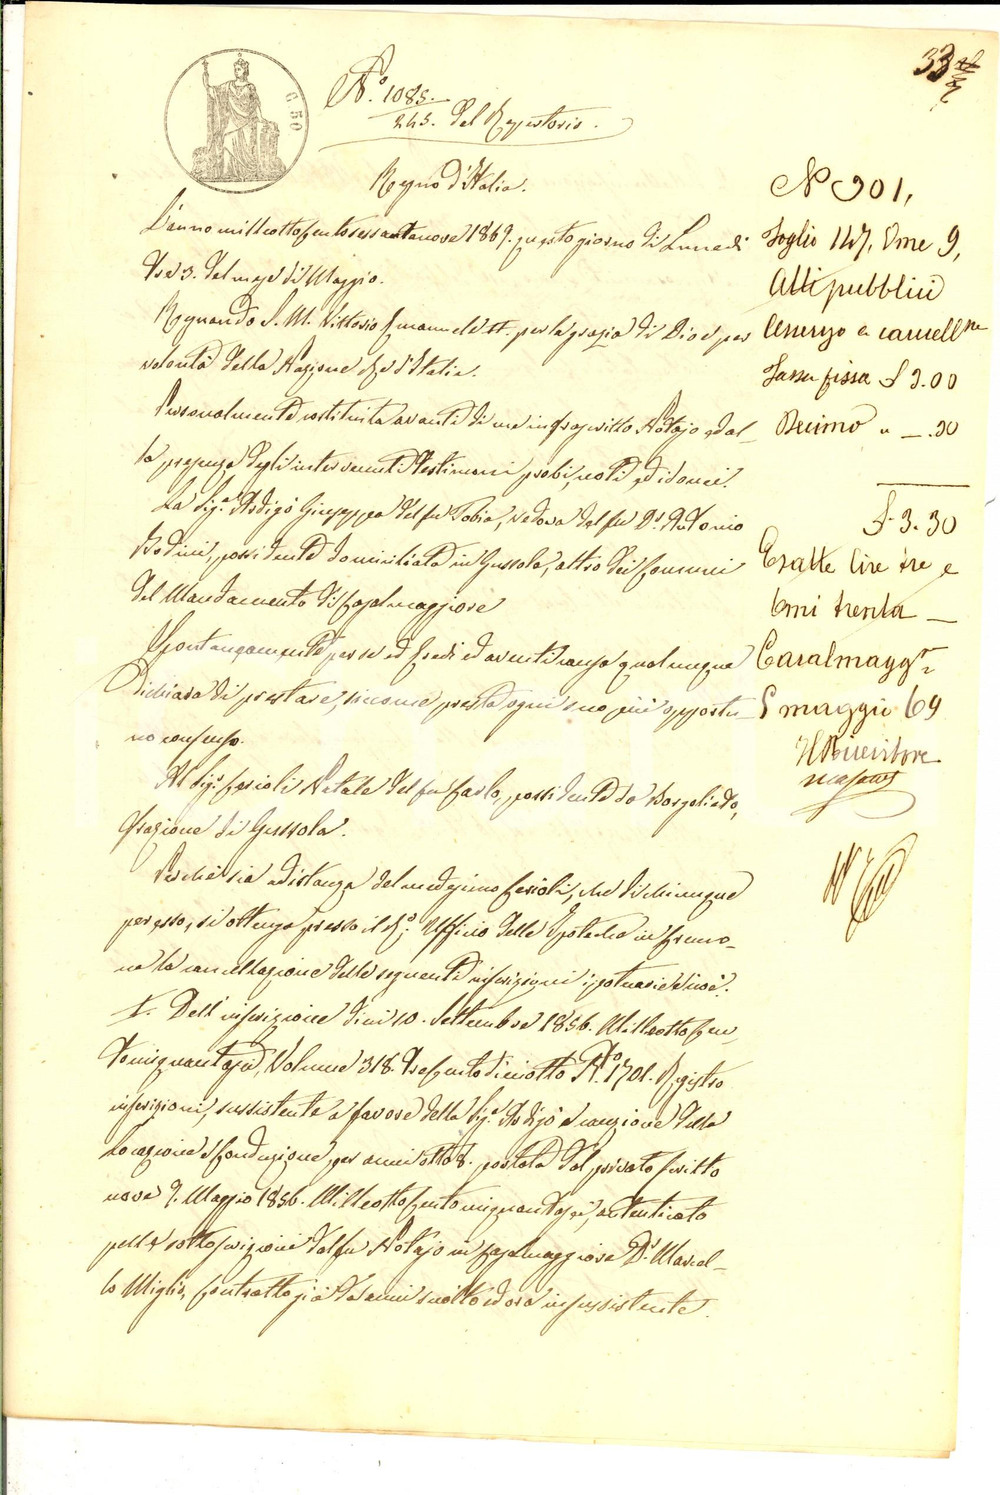 C. 50
N.° 1085.
245. del Repertorio.
Regno d'Italia.
L'anno milleottocentosessantanove 1869. questo giorno di Lunedì
tre 3. del mese di Maggio.
Regnando S. M. Vittorio Emanuele II. per la grazia di Dio e per
volontà della Nazione Re d'Italia.
Personalmente costituita avanti di me infrascritto Notajo ed al-
la presenza degli intervenuti testimoni probi, noti ed idonei.
La Sig.ª Ardigò Giuseppa del fu Tobia, vedova del fu D.r Antonio
Bodini, possidente domiciliata in Gussola, altro dei Comuni
del Mandamento di Casalmaggiore
Spontaneamente per se ed Eredi ed aventi causa qualunque
dichiara di prestare, siccome presta ogni suo più opportu-
no consenso.
Al Sig.r Cerioli Natale del fu Carlo, possidente da Borgolieto,
frazione di Gussola.
Perchè sia ad istanza del medesimo Cerioli, che di chiunque
per esso, si ottenga presso il R.° Ufficio delle Ipoteche in Cremo-
na la cancellazione delle seguenti inscrizioni ipotecarie cioè:
I. Dell'inscrizione dieci 10. Settembre 1856. Milleottocen-
tocinquantasei, Volume 318. trecentodieciotto N.° 1701. Registro
inscrizioni, sussistente a favore della Sig.ª Ardigò a cauzione della
Locazione e Conduzione per anni otto 8. portata dal privato scritto
nove 9. Maggio 1856. Milleottocentocinquantasei, autenticato
nelle sottoscrizioni dal fu Notajo in Casalmaggiore D.r Marcel-
lo Miglio, Contratto già da anni sciolto ed ora insussistente.
33
N° 901,
Foglio 147, Vme 9,
Atti pubblici
Assenso a cancell.ne
Tassa fissa £ 3.00
Decimo " _.30
£ 3.30
Esatte lire tre e
cmi trenta _
Casalmagg.re
5 maggio 69
Il Ricevitore